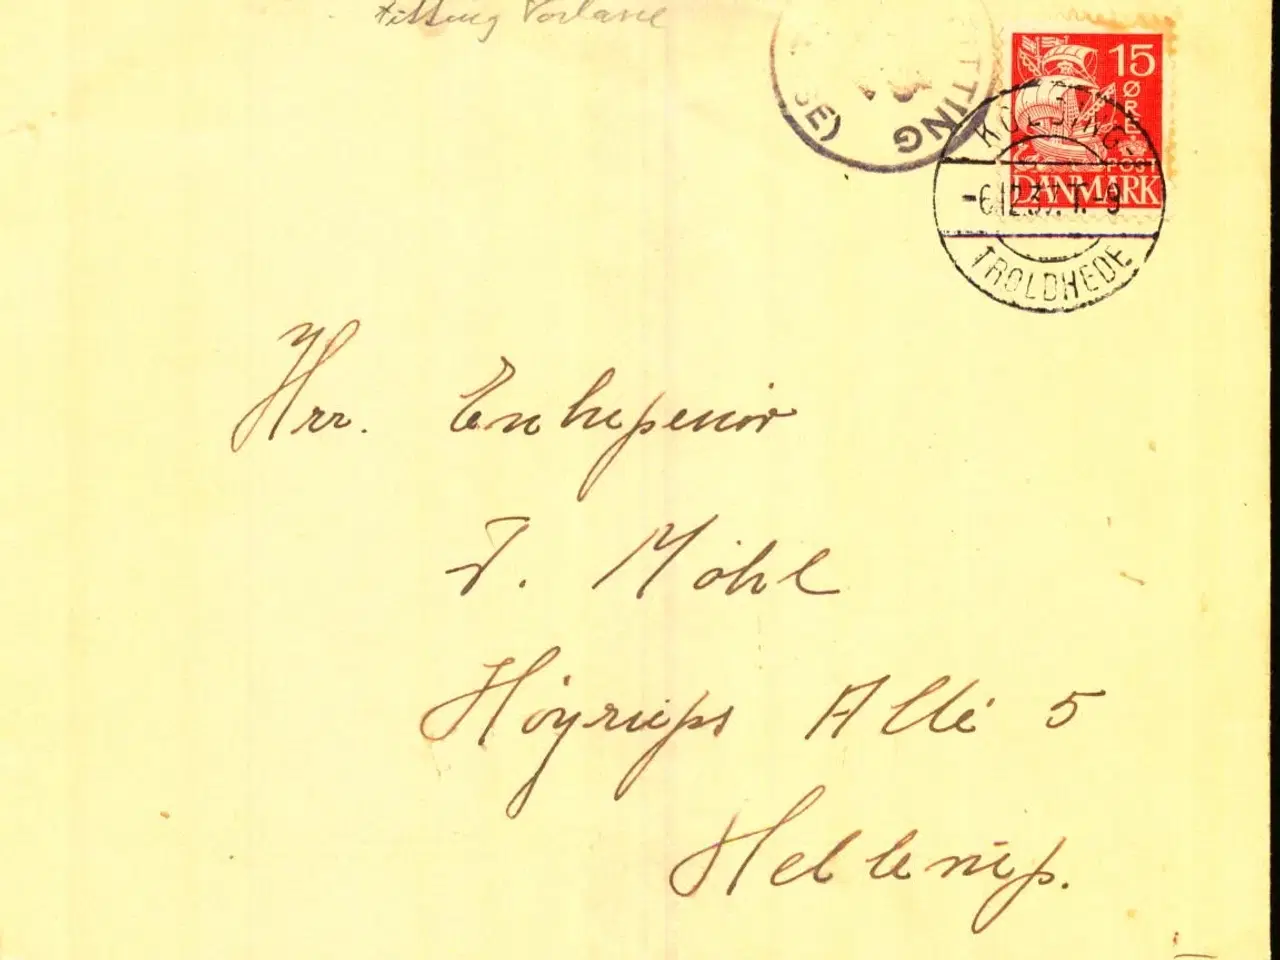 Fitting Vorbasse
FITTING
SE)
15
ØRE
POST
DANMARK
KOLDING-
-6.12.37. T.-9
TROLDHEDE
Hrr. Entreprenør
J. Møhl
Høyrups Allé 5
Hellerup.